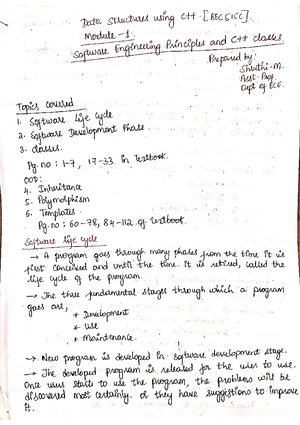 Data Structures using C++ [BEC515C].
Module -1
Software Engineering Principles and C++ classes.
Prepared by:
Shruthi. M.
Asst. Prof.
Dept of ECE.
Topics covered
1. Software life cycle
2. Software Development Phase.
3. classes.
Pg. no : 1-7, 17-33. in Textbook.
OOD:
4. Inheritance
5. Polymorphism
6. Templates.
Pg. no : 60-78, 84-112 of textbook.
Software life cycle
→ A program goes through many phases from the time it is
first conceived and until the time it is retired, called the
life cycle of the program.
→ The three fundamental stages through which a program
goes are,
* Development
* Use
* Maintenance.
→ New program is developed in software development stage.
→ The developed program is released for the user to use.
Once users starts to use the program, the problems will be
discovered most certainly. or they have suggestions to improve
it.